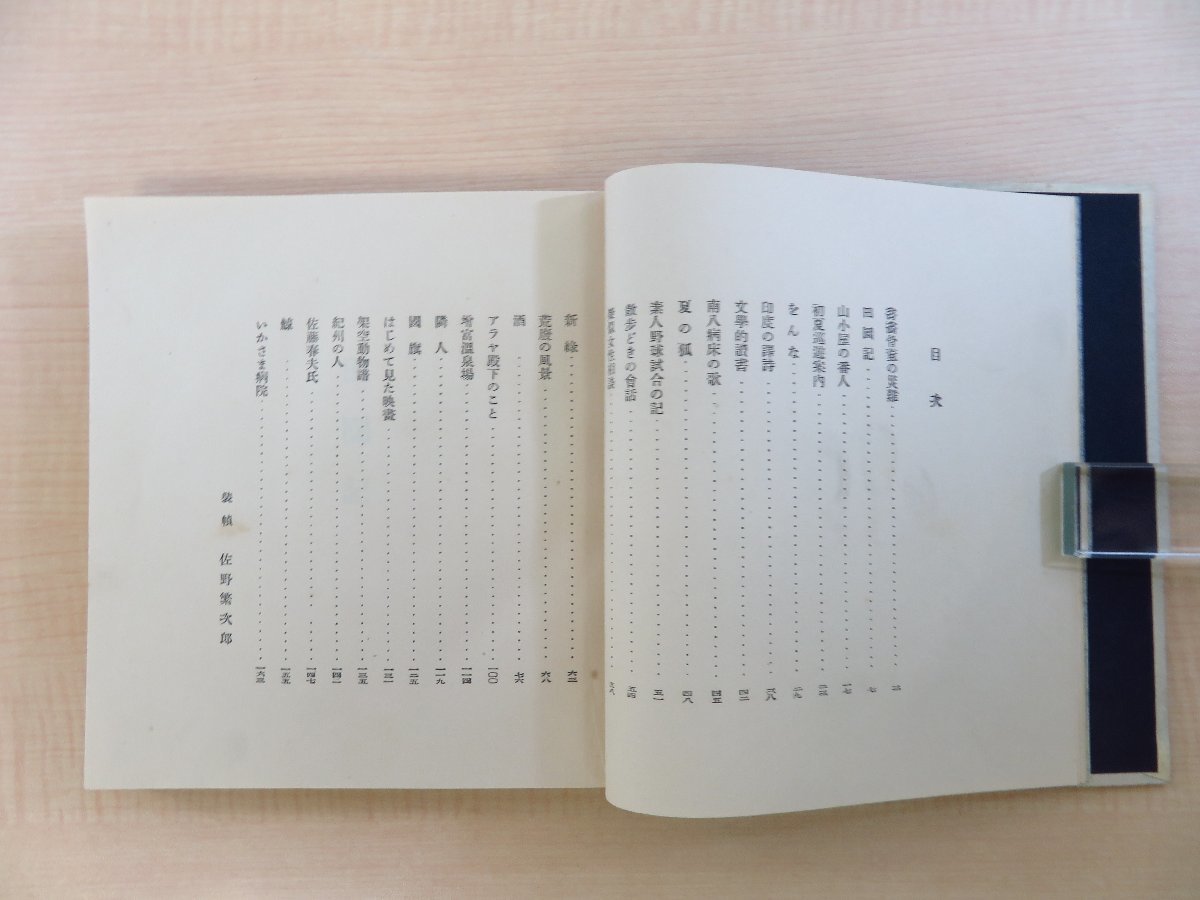 目次
書畫骨董の災難……三
田園記……七
山小屋の番人……一七
初夏巡遊案内……二三
をんな……二九
印度の譯詩……三八
文學的讀書……四二
南八病床の歌……四五
夏の狐……四八
素人野球試合の記……五一
散歩どきの會話……五四
女性……五八
新緑……六二
荒廢の風景……六八
酒……七六
アラヤ殿下のこと……一〇〇
増富溫泉場……一一四
隣人……一一九
國旗……一二五
はじめて見た映畫……一三一
架空動物譜……一三五
紀州の人……一四一
佐藤春夫氏……一四七
鱸……一五五
いかさま病院……一六三
裝幀 佐野繁次郎